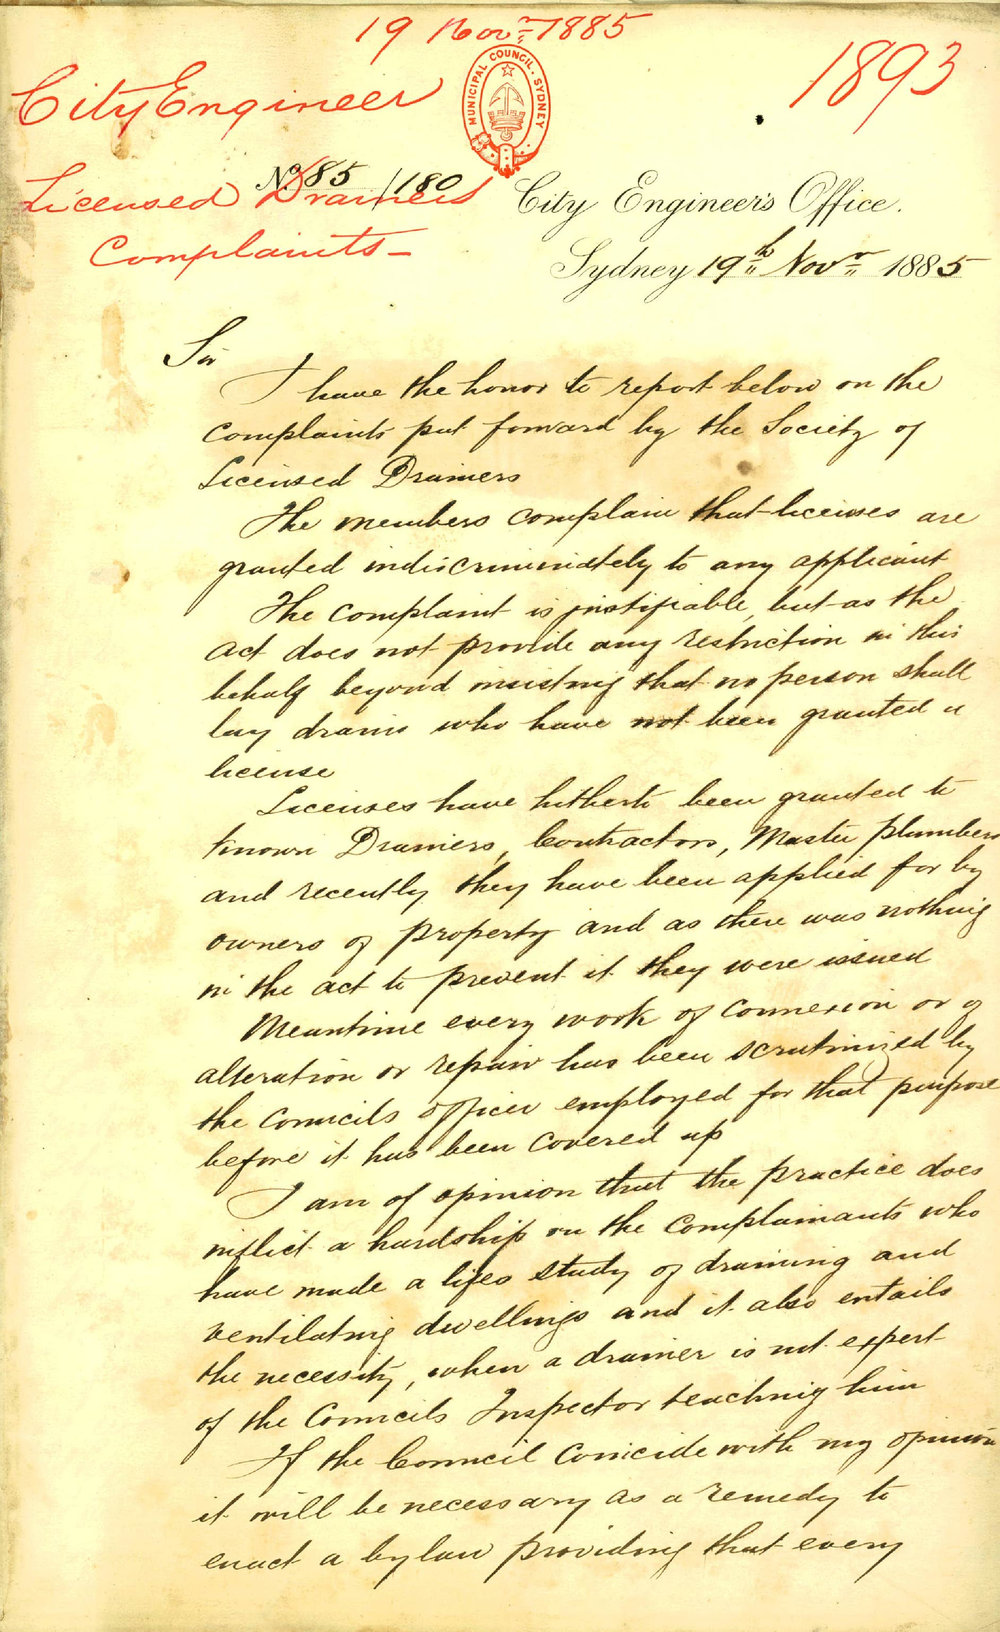 19 Novr 1885
City Engineer
1893
MUNICIPAL COUNCIL. SYDNEY
Licensed Drainers
Complaints -
No 85/180
City Engineer's Office.
Sydney 19th Novr 1885
Sir
I have the honor to report below on the
complaints put forward by the Society of
Licensed Drainers
The members complain that licenses are
granted indiscriminately to any applicant
The complaint is justifiable, but as the
act does not provide any restriction in this
behalf beyond insisting that no person shall
lay drains who have not been granted a
license
Licenses have hitherto been granted to
known Drainers, Contractors, Master plumbers
and recently they have been applied for by
owners of property and as there was nothing
in the act to prevent it they were issued
Meantime every work of connexion or of
alteration or repair has been scrutinized by
the Councils officer employed for that purpose
before it has been covered up
I am of opinion that the practice does
inflict a hardship on the complainants who
have made a lifes study of draining and
ventilating dwellings and it also entails
the necessity, when a drainer is not expert
of the Councils Inspector teaching him
If the Council coincide with my opinion
it will be necessary as a remedy to
enact a bylaw providing that every